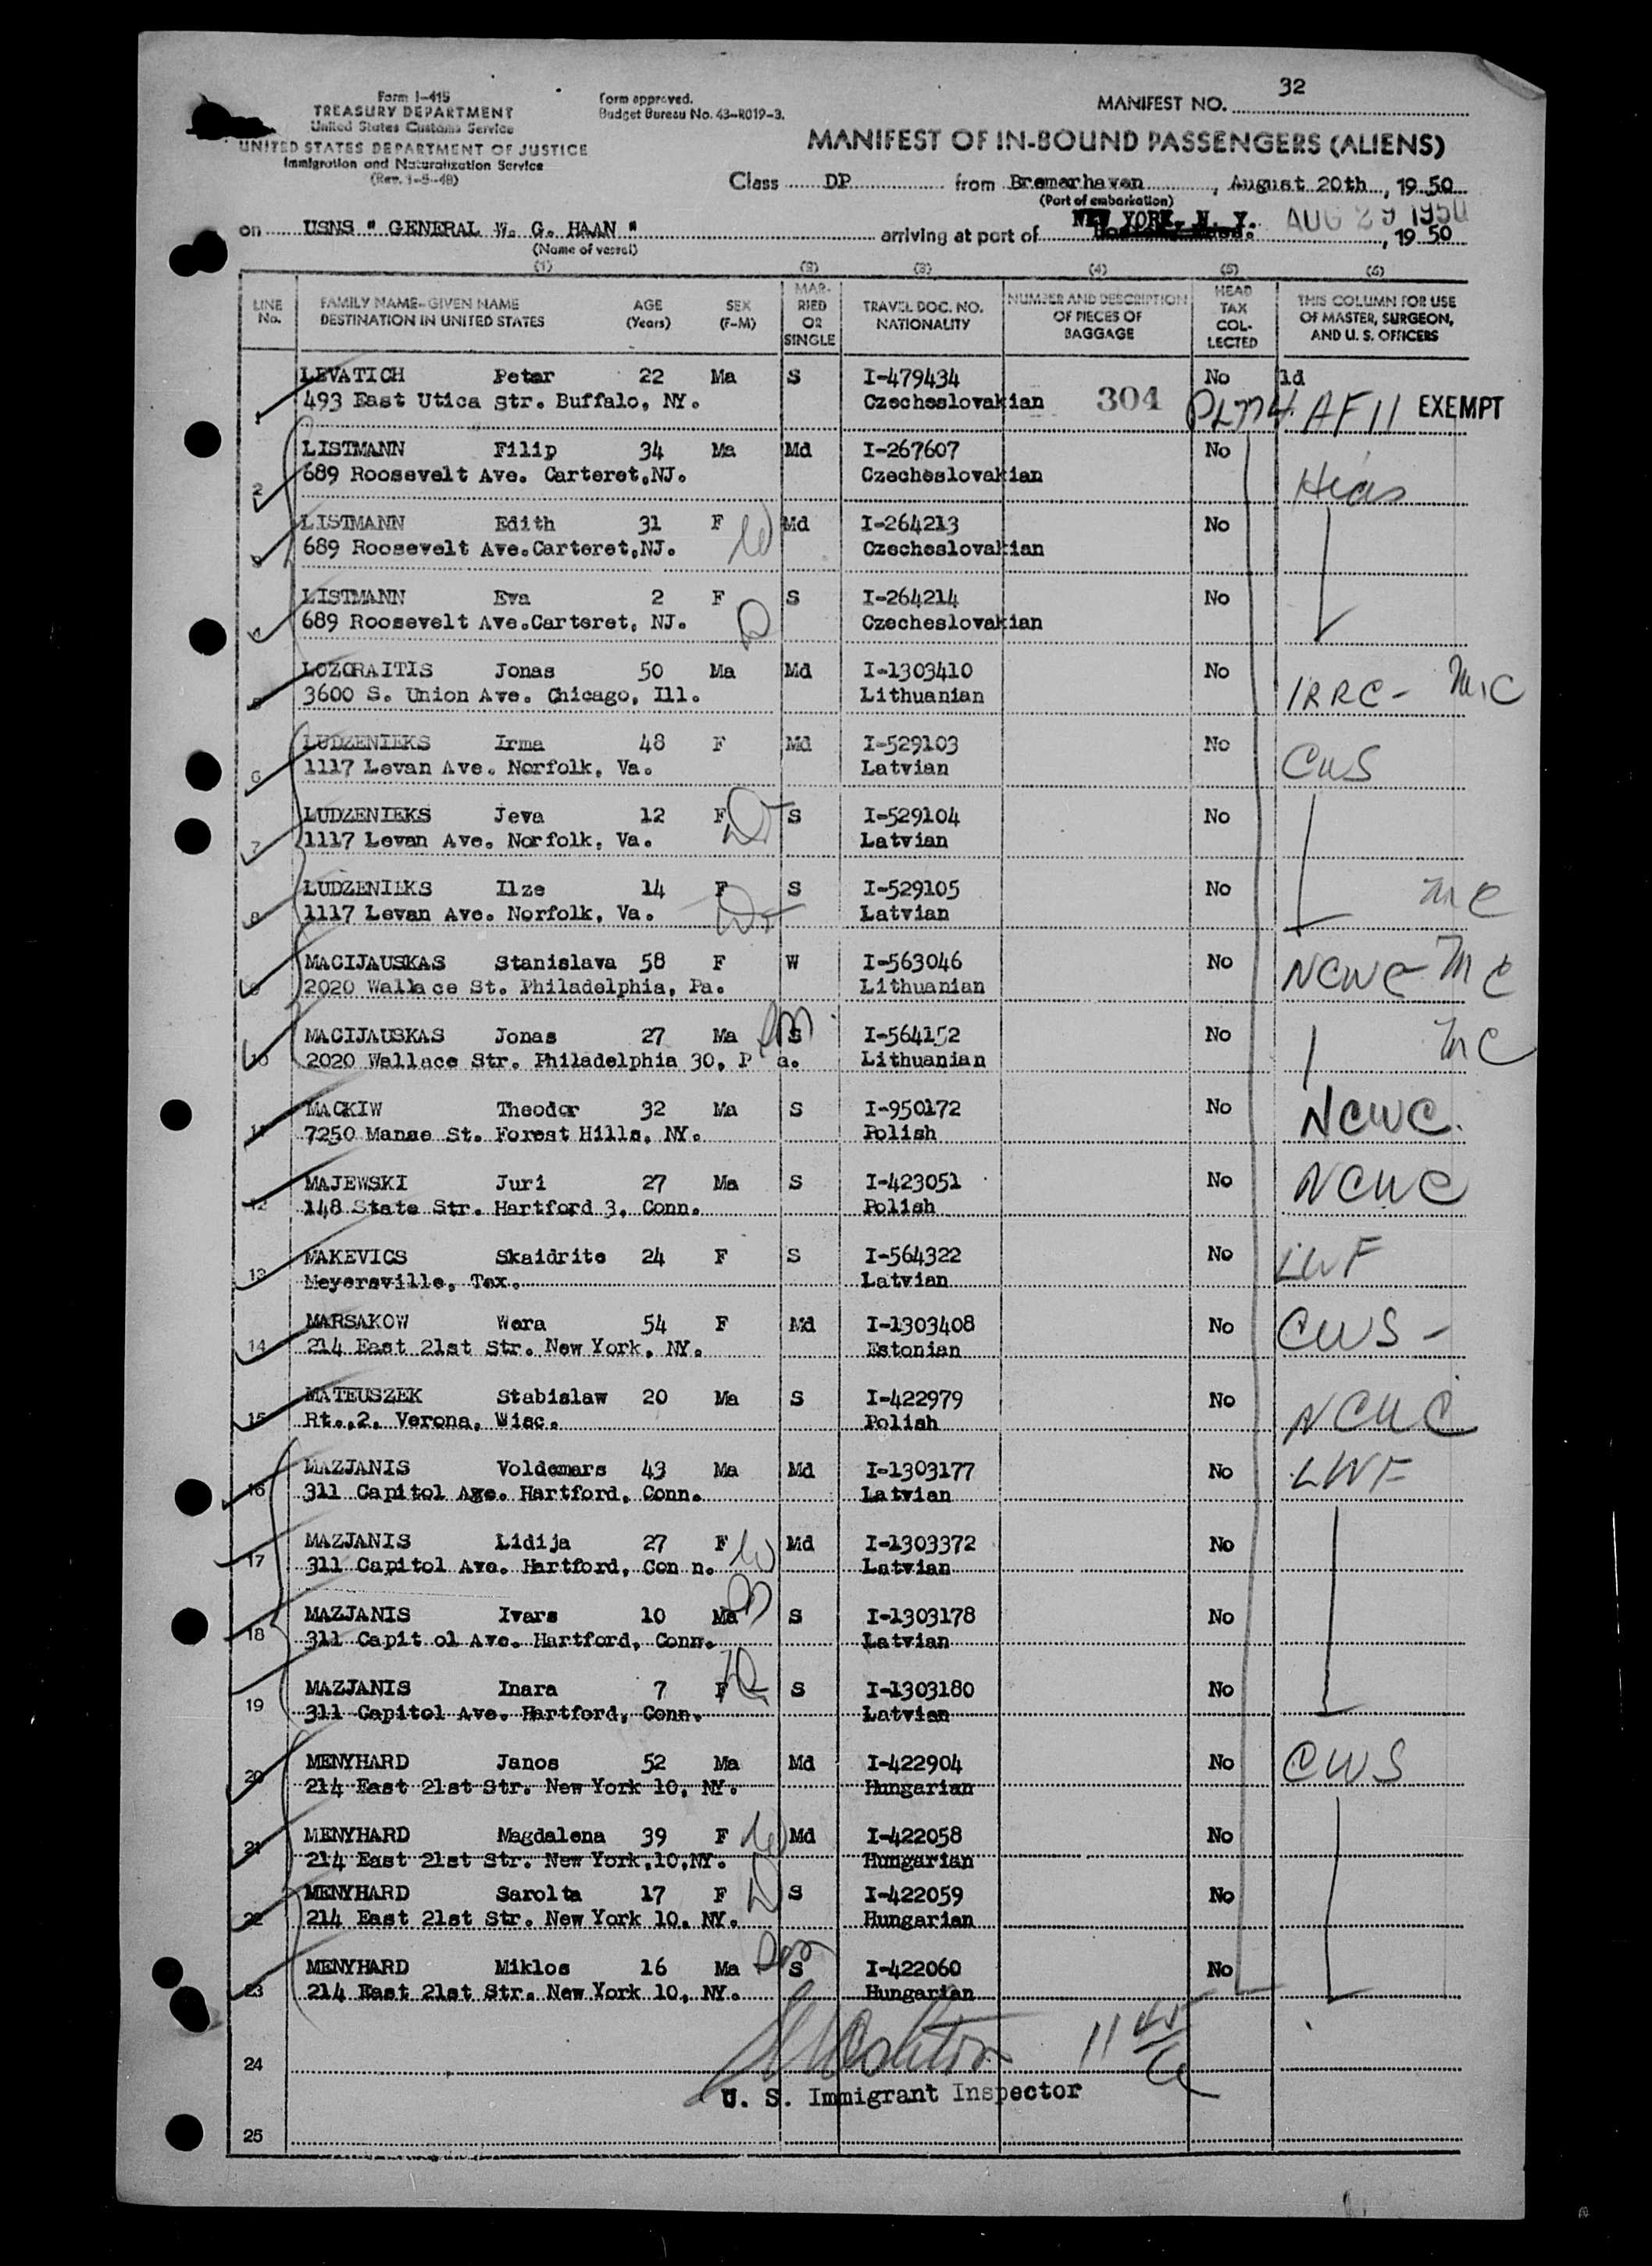 Form I-415
TREASURY DEPARTMENT
United States Customs Service
UNITED STATES DEPARTMENT OF JUSTICE
Immigration and Naturalization Service
(Rev. 1-5-48)
Form approved.
Budget Bureau No. 43-R019-3.
MANIFEST NO. 32
MANIFEST OF IN-BOUND PASSENGERS (ALIENS)
Class DP from Bremerhaven, August 20th, 1950
(Port of embarkation)
on USNS " GENERAL W. G. HAAN " arriving at port of NEW YORK, N. Y. AUG 29 1950, 1950
(Name of vessel)
(1) (2) (3) (4) (5) (6)
LINE No. FAMILY NAME-GIVEN NAME DESTINATION IN UNITED STATES AGE (Years) SEX (F-M) MARRIED OR SINGLE TRAVEL DOC. NO. NATIONALITY NUMBER AND DESCRIPTION OF PIECES OF BAGGAGE HEAD TAX COLLECTED THIS COLUMN FOR USE OF MASTER, SURGEON, AND U. S. OFFICERS
LEVATICH Peter 22 Ma S I-479434 No 1d
493 East Utica Str. Buffalo, NY. Czecheslovakian 304 AF11 EXEMPT
LISTMANN Filip 34 Ma Md I-267607 No
2 689 Roosevelt Ave. Carteret,NJ. Czecheslovakian Hias
LISTMANN Edith 31 F W Md I-264213 No
3 689 Roosevelt Ave.Carteret,NJ. Czecheslovakian
LISTMANN Eva 2 F D S I-264214 No
4 689 Roosevelt Ave.Carteret, NJ. Czecheslovakian
LOZORAITIS Jonas 50 Ma Md I-1303410 No
5 3600 S. Union Ave. Chicago, Ill. Lithuanian IRRC - MC
LUDZENIEKS Irma 48 F Md I-529103 No
6 1117 Levan Ave. Norfolk, Va. Latvian CWS
LUDZENIEKS Jeva 12 F S I-529104 No
7 1117 Levan Ave. Norfolk, Va. Latvian
LUDZENIEKS Ilze 14 F S I-529105 No
8 1117 Levan Ave. Norfolk, Va. Latvian MC
MACIJAUSKAS Stanislava 58 F W I-563046 No
9 2020 Wallace St. Philadelphia, Pa. Lithuanian NCWC - MC
MACIJAUSKAS Jonas 27 Ma S I-564152 No
10 2020 Wallace Str. Philadelphia 30, P a. Lithuanian MC
MACKIW Theodor 32 Ma S I-950172 No
11 7250 Manse St. Forest Hills, NY. Polish NCWC.
MAJEWSKI Juri 27 Ma S I-423051 No
12 148 State Str. Hartford 3, Conn. Polish NCWC
MAKEVICS Skaidrite 24 F S I-564322 No
13 Meyersville, Tex. Latvian LWF
MARSAKOW Wera 54 F Md I-1303408 No
14 214 East 21st Str. New York, NY. Estonian CWS -
MATEUSZEK Stabislaw 20 Ma S I-422979 No
15 Rt. 2. Verona, Wisc. Polish NCWC
MAZJANIS Voldemars 43 Ma Md I-1303177 No
16 311 Capitol Age. Hartford, Conn. Latvian LWF
MAZJANIS Lidija 27 F W Md I-1303372 No
17 311 Capitol Ave. Hartford, Con n. Latvian
MAZJANIS Ivars 10 Ma S I-1303178 No
18 311 Capit ol Ave. Hartford, Conn. Latvian
MAZJANIS Inara 7 F S I-1303180 No
19 311 Capitol Ave. Hartford, Conn. Latvian
MENYHARD Janos 52 Ma Md I-422904 No
20 214 East 21st Str. New York 10, NY. Hungarian CWS
MENYHARD Magdalena 39 F W Md I-422058 No
21 214 East 21st Str. New York,10,NY. Hungarian
MENYHARD Sarolta 17 F D S I-422059 No
22 214 East 21st Str. New York 10, NY. Hungarian
MENYHARD Miklos 16 Ma Son S I-422060 No
23 214 East 21st Str. New York 10, NY. Hungarian
24
U. S. Immigrant Inspector
25